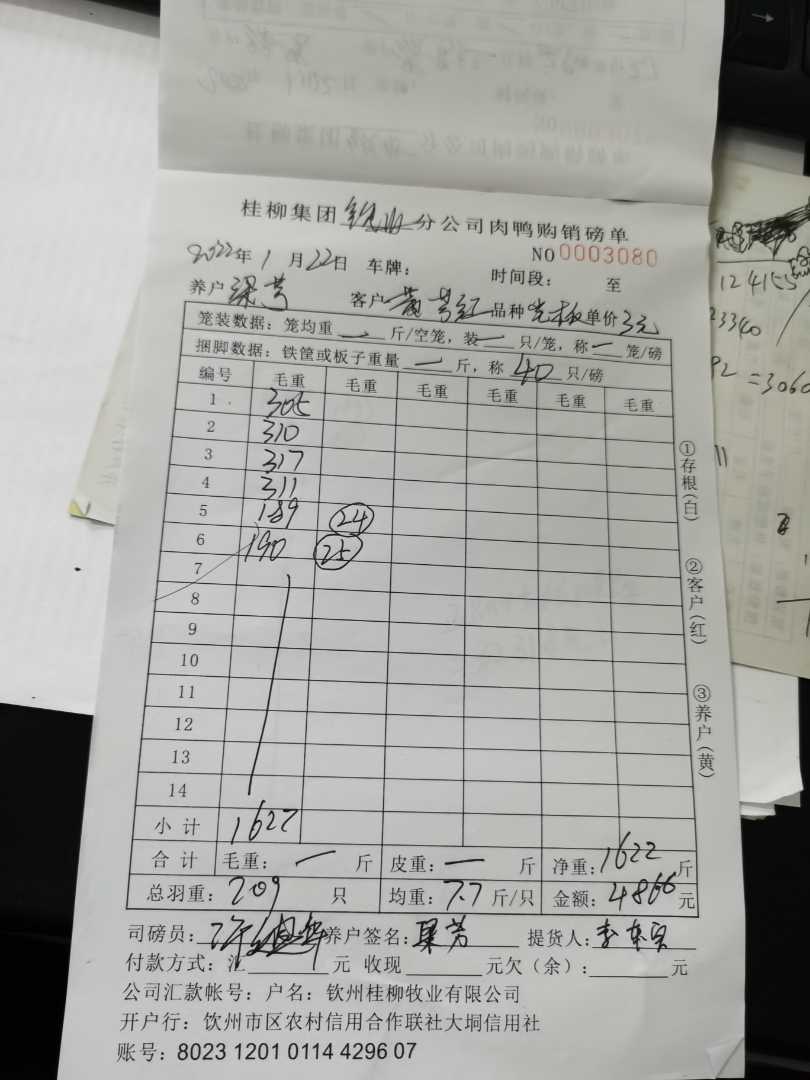 桂柳集团钦州分公司肉鸭购销磅单
NO 0003080
2022年1月22日 车牌： 时间段： 至
养户 梁芳 客户 黄芳红 品种 光板 单价 3元
笼装数据：笼均重 一 斤/空笼，装 一 只/笼，称 一 笼/磅
捆脚数据：铁筐或板子重量 一 斤，称 40 只/磅
编号 毛重 毛重 毛重 毛重 毛重 毛重
1 305
2 310
3 317
4 311
5 189 24
6 190 25
7
8
9
10
11
12
13
14
小计 1622
合计 毛重： 一 斤 皮重： 一 斤 净重：1622 斤
总羽重：209 只 均重：7.7 斤/只 金额：4866 元
司磅员： 养户签名：梁芳 提货人：李
付款方式： 元 收现 元欠（余）： 元
公司汇款帐号：户名：钦州桂柳牧业有限公司
开户行：饮州市区农村信用合作联社大垌信用社
账号：8023 1201 0114 4296 07
①存根（白）
②客户（红）
③养户（黄）
124155
23340
=3060